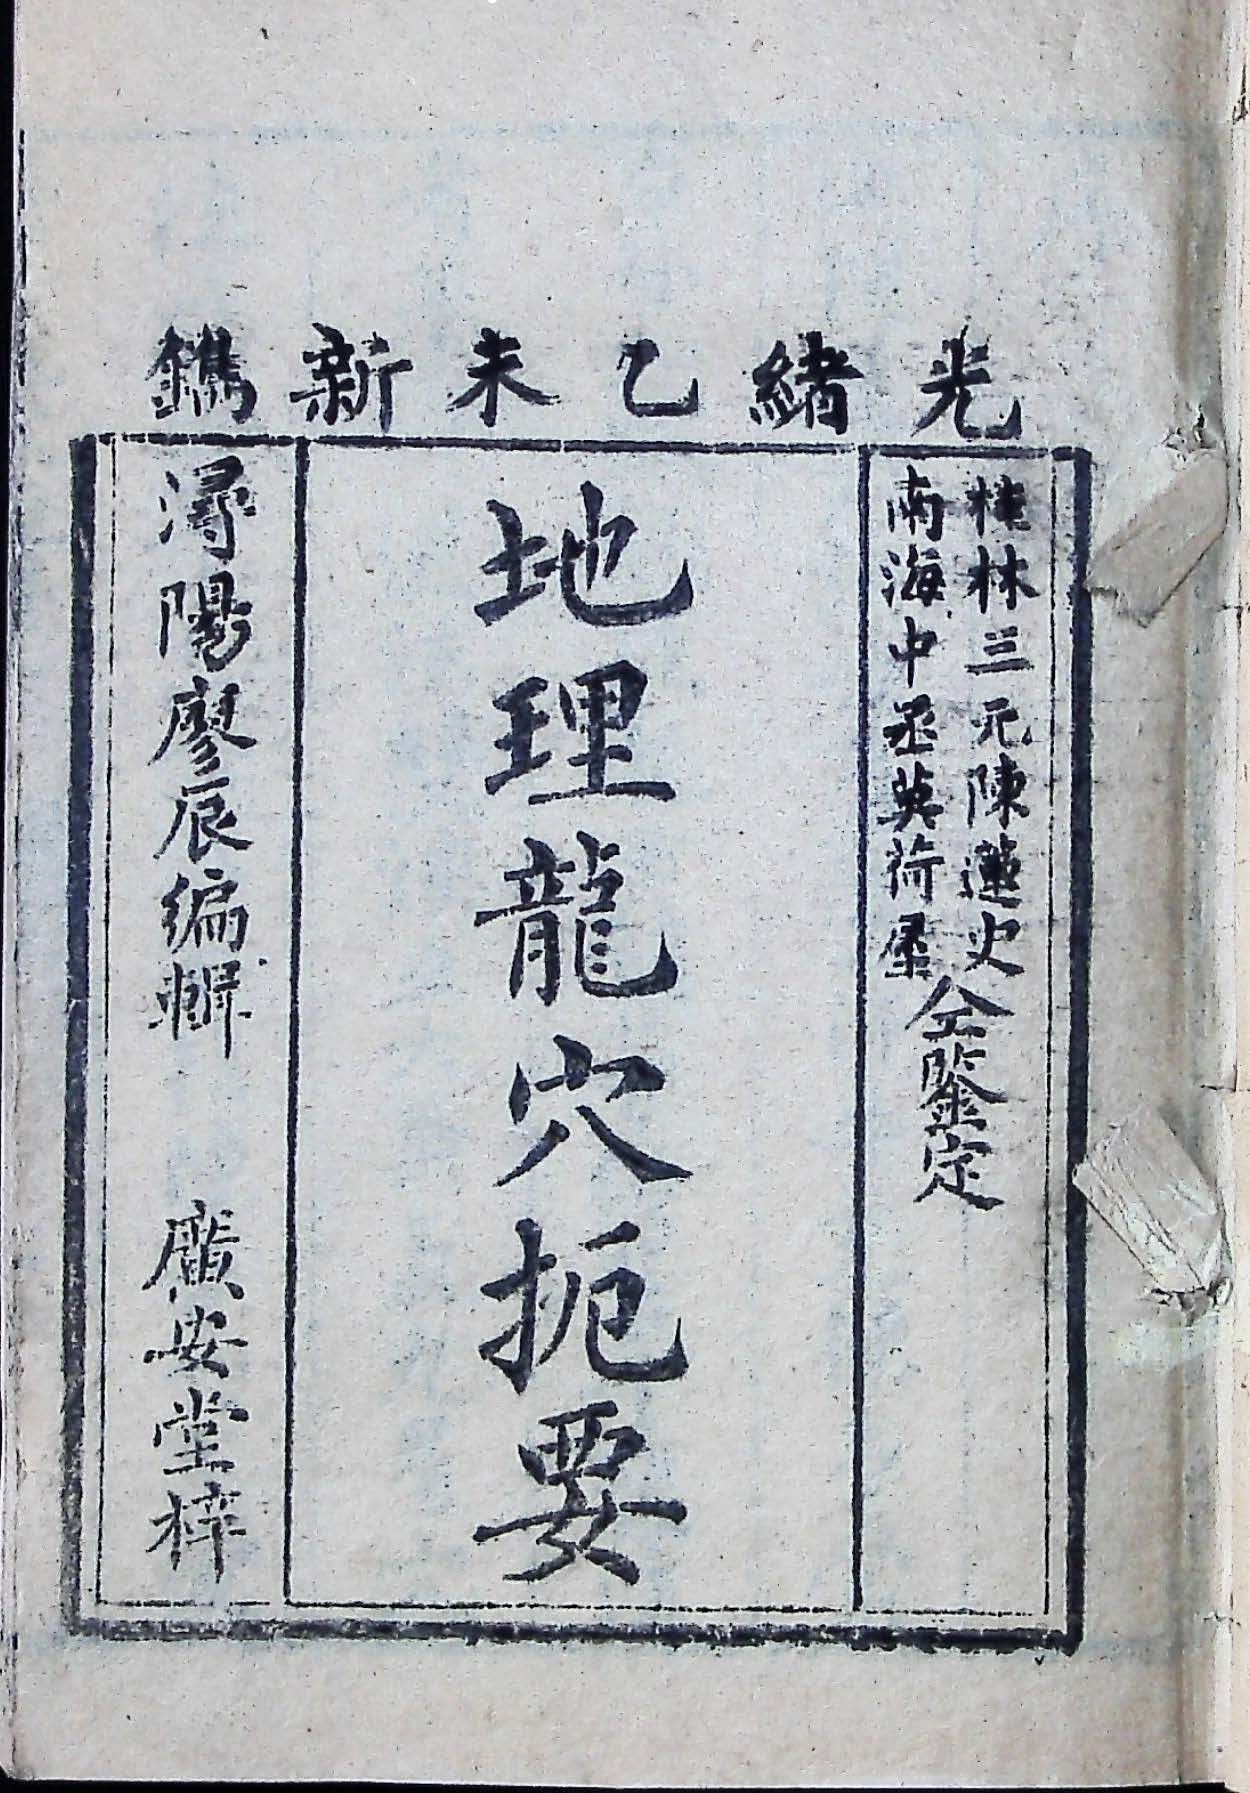 光緒乙未新鐫
桂林三元陳蓮史
南海中丞吳荷屋
仝鑒定
地理龍穴扼要
潯陽廖辰編輯
廣安堂梓